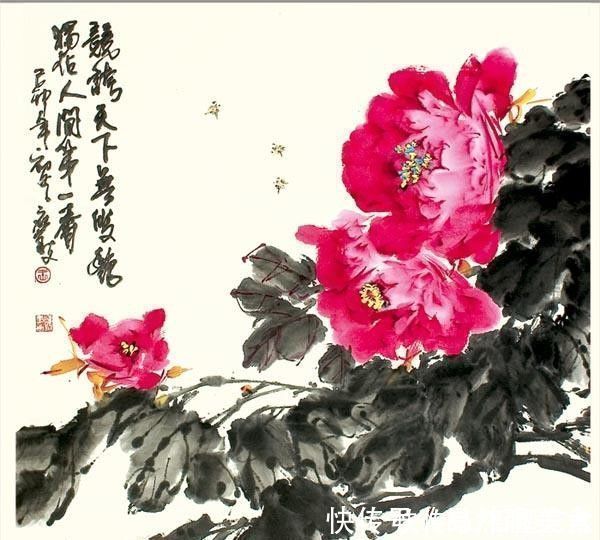 競誇天下無雙艷
獨佔人間第一香
己卯年初冬
快传号